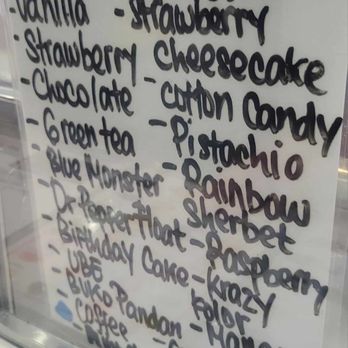 Vanilla
- Strawberry
- Chocolate
- Green tea
- Blue Monster
- Dr. Pepper Float
- Birthday Cake
- UBE
- Buko Pandan
- Coffee
- Strawberry
cheesecake
- Cotton Candy
- Pistachio
- Rainbow
Sherbet
- Raspberry
- Krazy
Kolor
- Mango